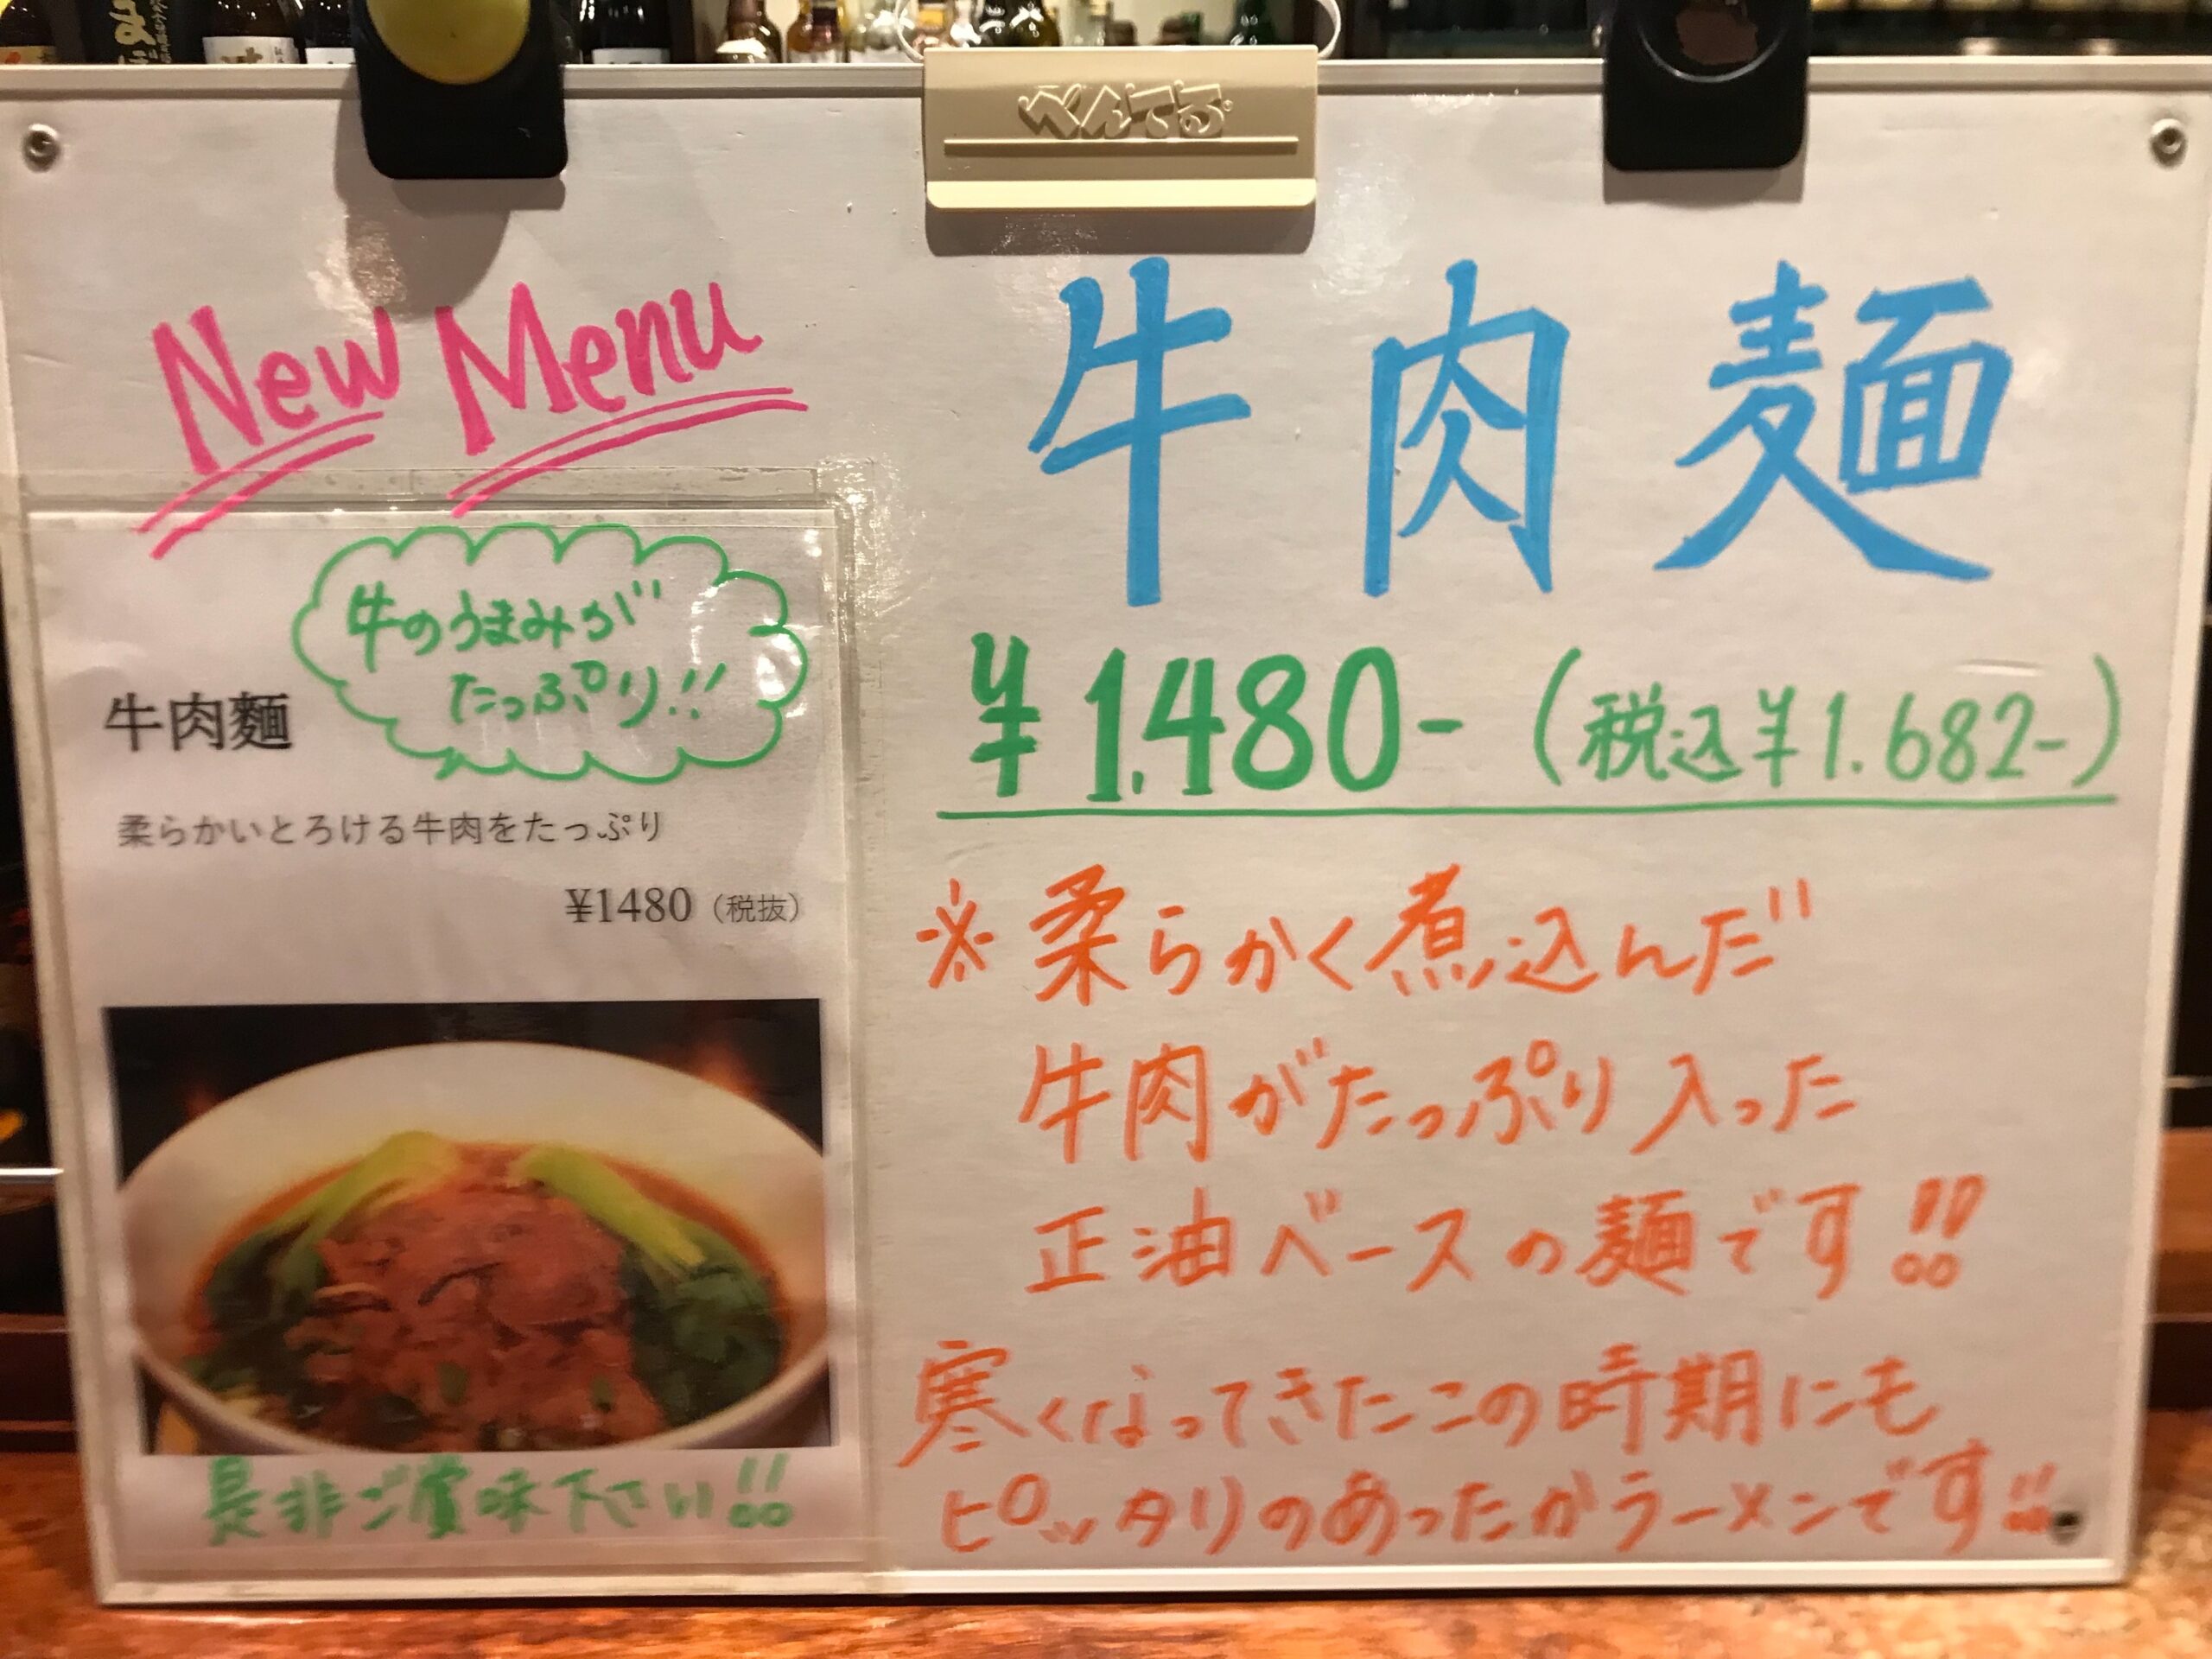 ぺんてる
New Menu
牛肉麺
牛のうまみが
たっぷり!!
牛肉麺
柔らかいとろける牛肉をたっぷり
¥1480（税抜）
是非ご賞味下さい!!
¥1.480-（税込¥1.682-）
※柔らかく煮込んだ
牛肉がたっぷり入った
正油ベースの麺です!!
寒くなってきたこの時期にも
ピッタリのあったかラーメンです!!